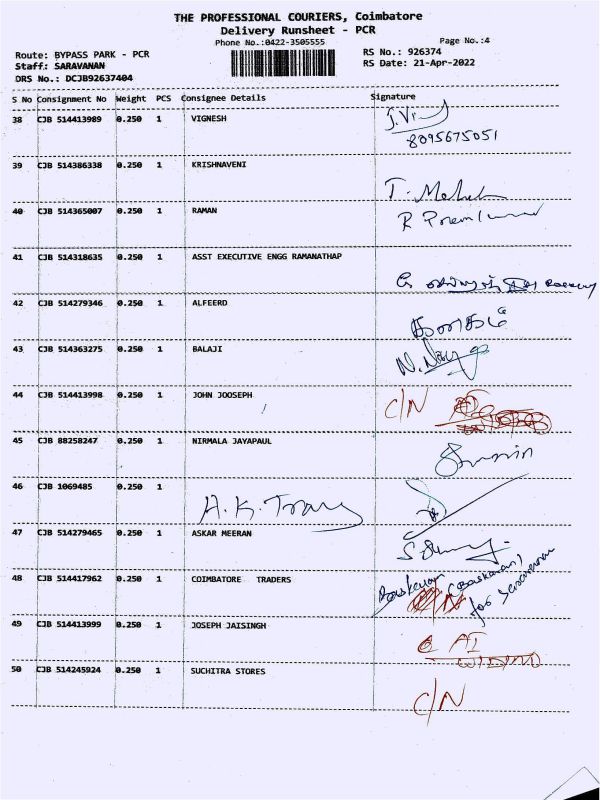 THE PROFESSIONAL COURIERS, Coimbatore
Delivery Runsheet - PCR
Phone No.:0422-3505555
Page No.:4
Route: BYPASS PARK - PCR
RS No.: 926374
Staff: SARAVANAN
RS Date: 21-Apr-2022
DRS No.: DCJB92637404
S No Consignment No Weight PCS Consignee Details Signature
38 CJB 514413989 0.250 1 VIGNESH
8095675051
39 CJB 514386338 0.250 1 KRISHNAVENI
40 CJB 514365007 0.250 1 RAMAN
41 CJB 514318635 0.250 1 ASST EXECUTIVE ENGG RAMANATHAP
42 CJB 514279346 0.250 1 ALFEERD
43 CJB 514363275 0.250 1 BALAJI
44 CJB 514413998 0.250 1 JOHN JOOSEPH C/N
45 CJB 88258247 0.250 1 NIRMALA JAYAPAUL
46 CJB 1069485 0.250 1
47 CJB 514279465 0.250 1 ASKAR MEERAN
48 CJB 514417962 0.250 1 COIMBATORE TRADERS
(Baskaran)
49 CJB 514413999 0.250 1 JOSEPH JAISINGH
50 CJB 514245924 0.250 1 SUCHITRA STORES C/N